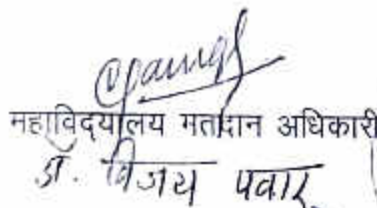 महाविद्यालय मतदान अधिकारी
डॉ. विजय पवार